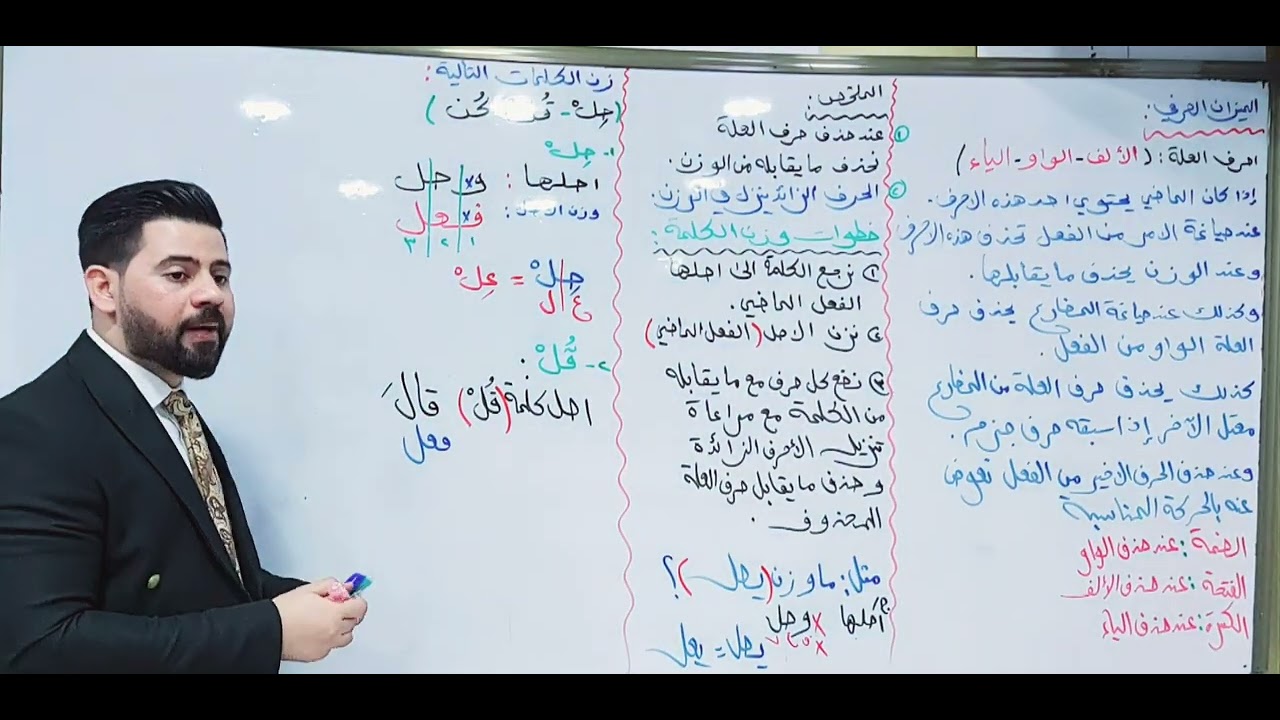 الميزان الصرفي:
احرف العلة: (الألف - الواو - الياء)
إذا كان الماضي يحتوي احد هذه الاحرف.
عند صياغة الامر من الفعل تحذف هذه الاحرف
وعند الوزن يحذف ما يقابلها.
وكذلك عند صياغة المضارع يحذف حرف
العلة الواو من الفعل.
كذلك يحذف حرف العلة من المضارع
معتل الآخر إذا سبقه حرف جزم.
وعند حذف الحرف الاخير من الفعل نعوض
عنه بالحركة المناسبة
الضمة: عند حذف الواو
الفتحة: عند حذف الألف
الكسرة: عند حذف الياء
الملخص:
١ عند حذف حرف العلة
نحذف ما يقابله من الوزن.
٢ الحرف الزائد ينزل في الوزن.
خطوات وزن الكلمة:
١) نرجع الكلمة الى اصلها
الفعل الماضي.
٢) نزن الاصل (الفعل الماضي)
٣) نضع كل حرف مع ما يقابله
من الكلمة مع مراعاة
تنزيل الأحرف الزائدة
وحذف ما يقابل حرف العلة
المحذوف.
مثل: ما وزن (يصل)؟
أصلها وصل
يصل = يعل
زن الكلمات التالية:
(صِلْ - قُل - صُن)
١- صِلْ
اصلها: وصل
وزن الاصل: فعل
١ ٢ ٣
صِلْ = عِلْ
عِ ل
٢- قُلْ:
اصل كلمة (قُلْ) قالَ
فعل